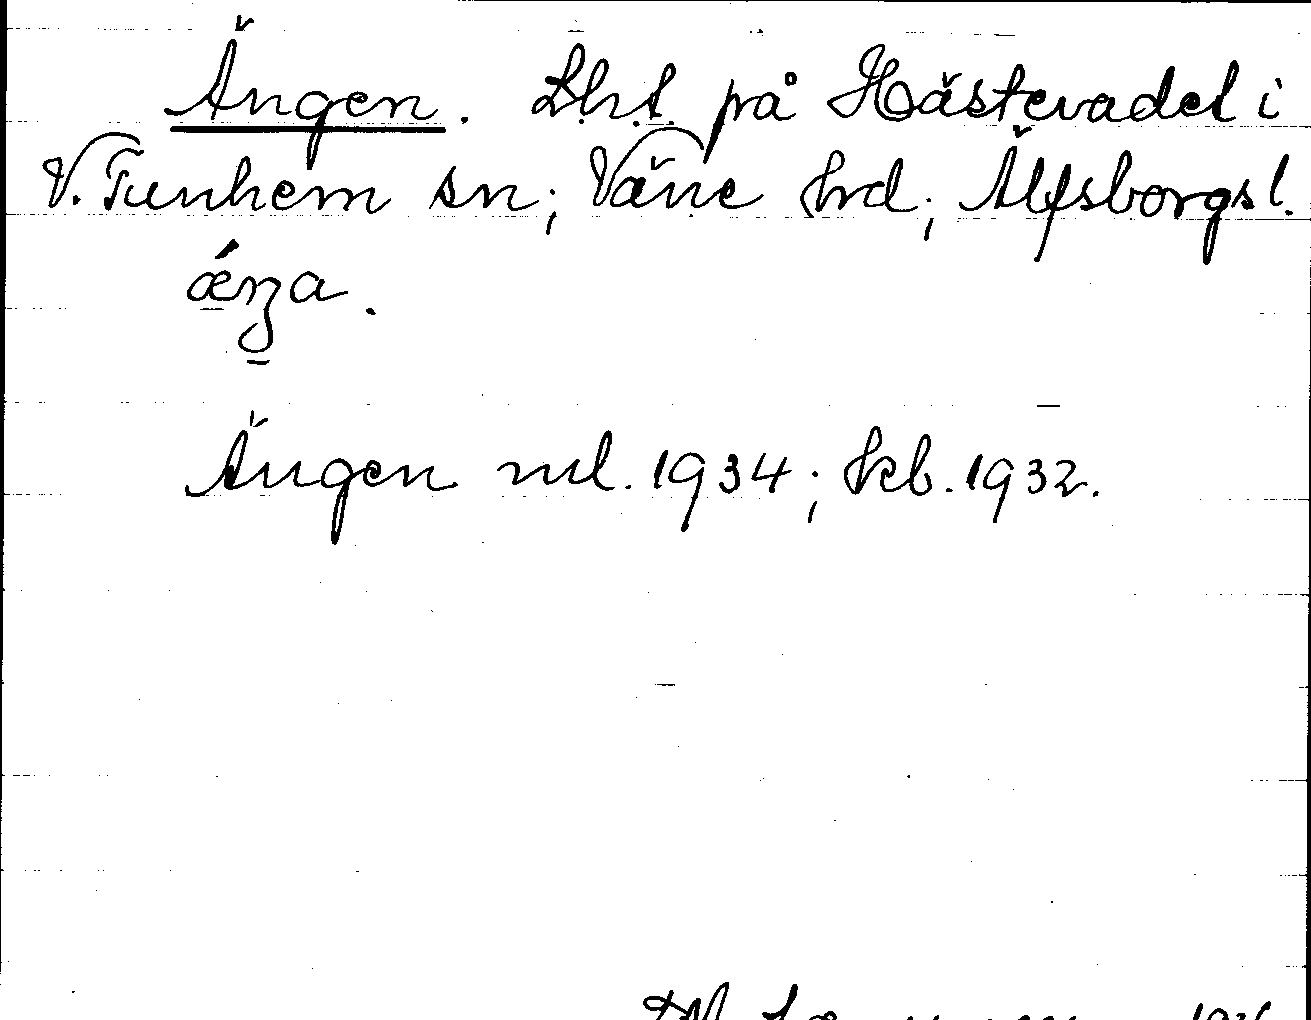 Ängen. Lht på Hästevadet i
V. Tunhem sn; Väne hd; Älfsborgs l.
ǽŋa.
Ängen ml. 1934; kb. 1932.